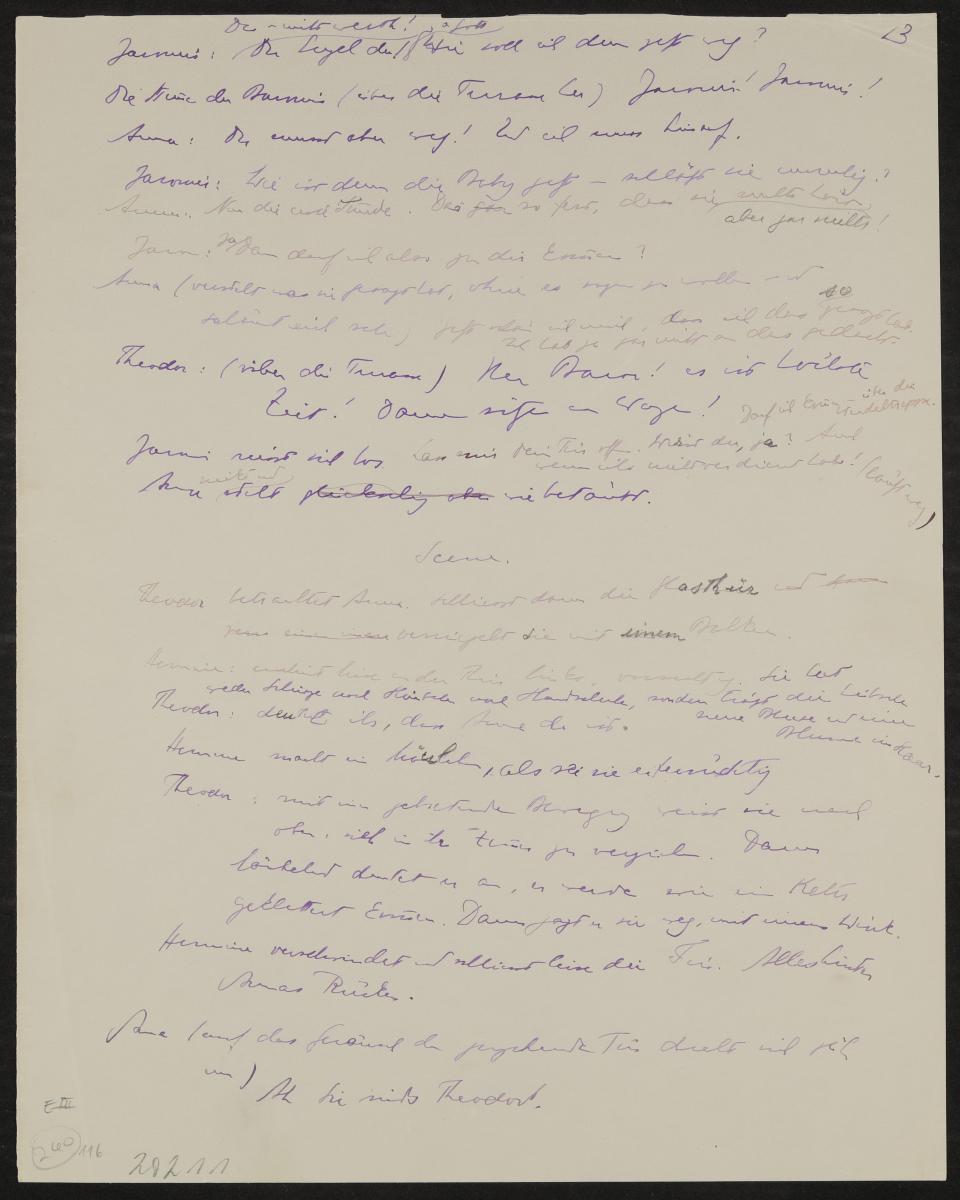 13
Jaromir: Du Engel du! soll ich denn jetzt weg?
Die Stimme der Baronin (über die Terrasse her) Jaromir! Jaromir!
Anna: Du musst aber weg! Und ich muss hinauf.
Jaromir: Wie ist denn die Baby jetzt – schläft sie unruhig?
Anna: Nur die erste Stunde. Dann so fest, dass sie nichts hört,
aber gar nichts!
Jarom: Da darf ich also zu dir kommen?
Anna (versteht was sie gesagt hat, ohne es sagen zu wollen und
schämt sich sehr) jetzt schäm ich mich, dass ich das so gesagt hab.
Ich hab ja gar nicht an das gedacht.
Theodor: (über die Terrasse) Herr Baron! es ist höchste
Zeit! Damen sitzen im Wagen!
Darf ich kommen über die Wendeltreppe.
Jaromir reisst sich los. Lass mir dein Tür offen. Wirst du, ja? Auch
wenn ichs nicht verdient habe! (läuft weg)
Anna steht wie betäubt.
Scene.
Theodor betrachtet Anna. schliesst dann die Glasthür und
verriegelt sie mit einem Balken.
Hermine: erscheint leise in der Thür links, vorsichtig. Sie hat
weder Schürze noch Häubchen noch Handschuhe, sondern trägt eine hübsche
neue Bluse und eine
Blume im Haar.
Theodor: deutet ihr, dass Anna da ist.
Hermine macht ein, als sei sie eifersüchtig
Theodor: mit einer gebietenden Bewegung weist sie nach
oben, sich in ihr Zimmer zu verziehen. Dann
lächelnd deutet er an, er werde wie ein Kater
geklettert kommen. Dann jagt er sie weg, mit einem Wink.
Hermine verschwindet und schliesst leise die Tür. Alles hinter
Annas Rücken.
Anna (auf das Geräusch der gehenden Tür dreht sich jäh
um) Ah Sie sinds Theodor.
E III
240
116
20211